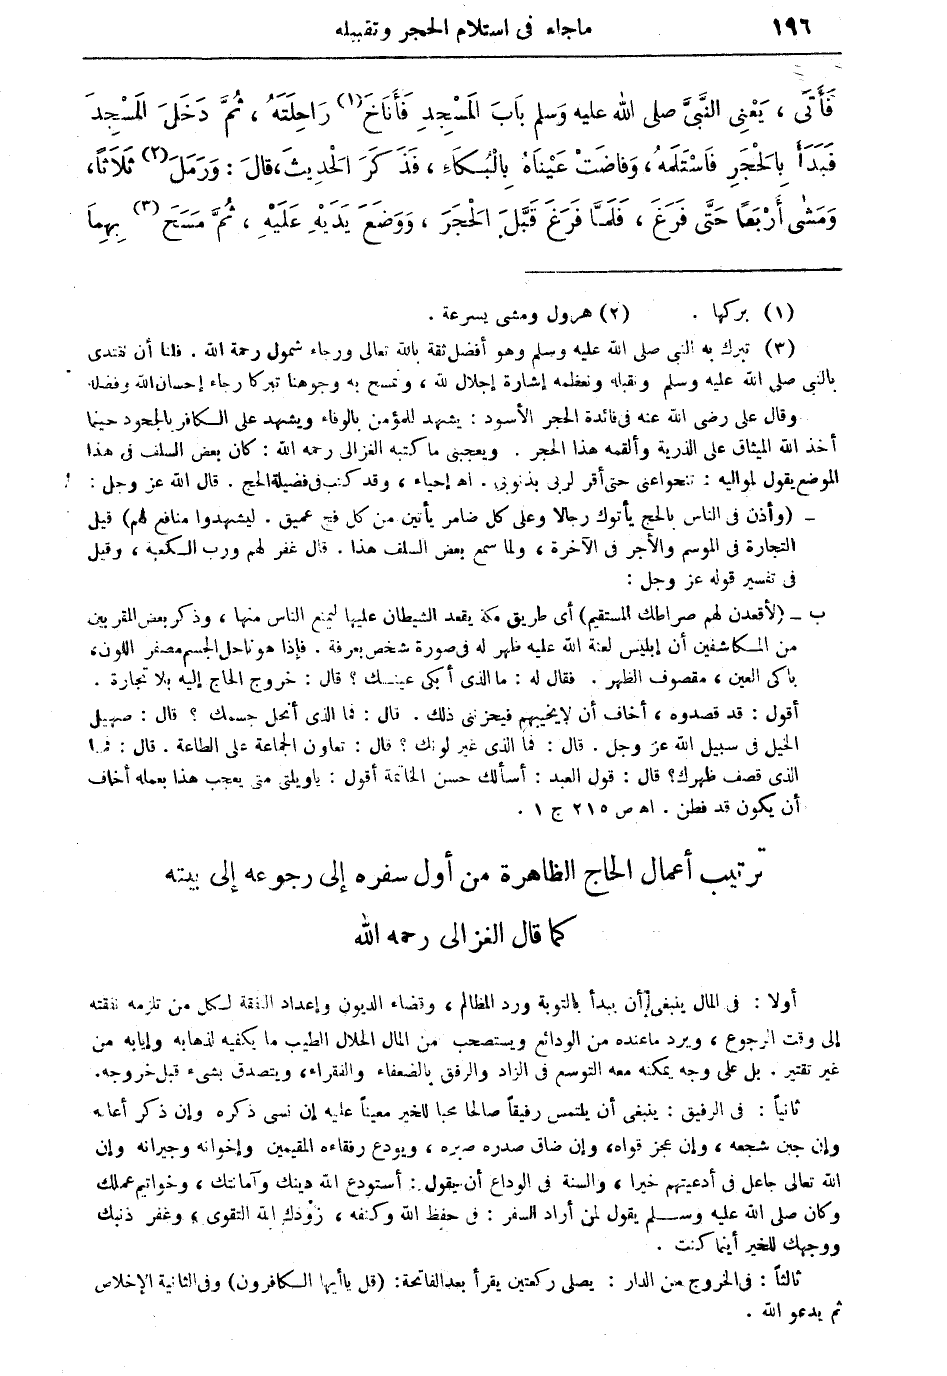 ١٩٦
ماجاء فى استلام الحجر وتقبيله
فَأَتَى ، يَعْنِى النَّبِىَّ صلى الله عليه وَسلم بَابَ الْمَسْجِدِ فَأَنَاخَ (١) رَاحِلَتَهُ ، ثُمَّ دَخَلَ الْمَسْجِدَ
فَبَدَأَ بِالْحَجَرِ فَاسْتَلَمَهُ، وَفَاضَتْ عَيْنَاهُ بِالْبُكَاءِ ، فَذَكَرَ الْحَدِيثَ، قالَ : وَرَمَلَ (٢) ثَلَاثًا،
وَمَشَى أَرْبَعًا حَتَّى فَرَغَ ، فَلَمَّا فَرَغَ قَبَّلَ الْحَجَرَ ، وَوَضَعَ يَدَيْهِ عَلَيْهِ ، ثُمَّ مَسَحَ (٣) بِهِمَا
(١) بركها . (٢) هرول ومشى بسرعة .
(٣) تبرك به النبى صلى الله عليه وسلم وهو أفضل ثقة بالله تعالى ورجاء شمول رحمة الله . فلنا أن نقتدى
بالنبى صلى الله عليه وسلم ونقبله ونعظمه إشارة إجلال لله ، ونمسح به وجوهنا تبركا رجاء إحسان الله وفضله
وقال على رضى الله عنه فى فائدة الحجر الأسود : يشهد للمؤمن بالوفاء ويشهد على الكافر بالجحود حينما
أخذ الله الميثاق على الذرية وألقمه هذا الحجر . ويعجبنى ماكتبه الغزالى رحمه الله : كان بعض السلف فى هذا
الموضع يقول لمواليه : تنحوا عنى حتى أقر لربى بذنوبى . اه إحياء ، وقد كتب فى فضيلة الحج . قال الله عز وجل :
ـ (وأذن فى الناس بالحج يأتوك رجالا وعلى كل ضامر يأتين من كل فج عميق . ليشهدوا منافع لهم) قيل
التجارة فى الموسم والأجر فى الآخرة ، ولما سمع بعض السلف هذا . قال غفر لهم ورب الكعبة ، وقيل
فى تفسير قوله عز وجل :
ب ـ (لأقعدن لهم صراطك المستقيم) أى طريق مكة يقعد الشيطان عليها ليمنع الناس منها ، وذكر بعض المقربين
من المكاشفين أن إبليس لعنة الله عليه ظهر له فى صورة شخص بعرفة . فإذا هو ناحل الجسم مصفر اللون،
باكى العين ، مقصوف الظهر . فقال له : ما الذى أبكى عينك ؟ قال : خروج الحاج إليه بلا تجارة .
أقول : قد قصدوه ، أخاف أن لايخيبهم فيحزننى ذلك . قال : فما الذى أنحل جسمك ؟ قال : صهيل
الخيل فى سبيل الله عز وجل . قال : فما الذى غير لونك ؟ قال : تعاون الجماعة على الطاعة . قال : فما
الذى قصف ظهرك؟ قال : قول العبد : أسألك حسن الخاتمة أقول : ياويلتى متى يعجب هذا بعمله أخاف
أن يكون قد فطن . اه ص ٢١٥ ج ١ .
ترتيب أعمال الحاج الظاهرة من أول سفره إلى رجوعه إلى بيته
كما قال الغزالى رحمه الله
أولا : فى المال ينبغى أن يبدأ بالتوبة ورد المظالم ، وقضاء الديون وإعداد النفقة لكل من تلزمه نفقته
إلى وقت الرجوع ، ويرد ماعنده من الودائع ويستصحب من المال الحلال الطيب ما يكفيه لذهابه وإيابه من
غير تقتير . بل على وجه يمكنه معه التوسع فى الزاد والرفق بالضعفاء والفقراء، ويتصدق بشىء قبل خروجه.
ثانياً : فى الرفيق : ينبغى أن يلتمس رفيقاً صالحا محبا للخير معيناً عليه إن نسى ذكره وإن ذكر أعانه
وإن جبن شجعه ، وإن عجز قواه، وإن ضاق صدره صبره ، ويودع رفقاءه المقيمين وإخوانه وجيرانه وإن
الله تعالى جاعل فى أدعيتهم خيرا ، والسنة فى الوداع أن يقول : أستودع الله دينك وأمانتك ، وخواتيم عملك
وكان صلى الله عليه وسلم يقول لمن أراد السفر : فى حفظ الله وكنفه ، زوّدك الله التقوى ، وغفر ذنبك
ووجهك للخير أينما كنت .
ثالثاً : فى الخروج من الدار : يصلى ركعتين يقرأ بعد الفاتحة: (قل ياأيها الكافرون) وفى الثانية الإخلاص
ثم يدعو الله .